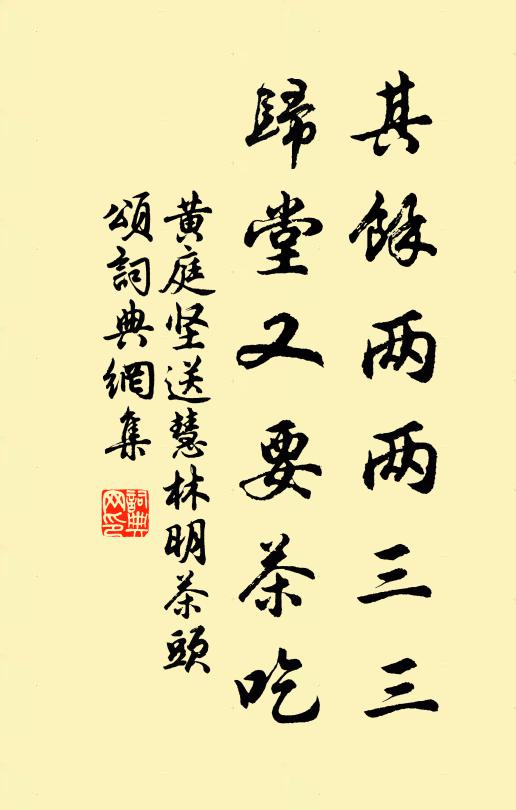 其餘两两三三
歸堂又要茶吃
黄庭坚送慧林明茶頭
頌詞典網集
詞典
网印